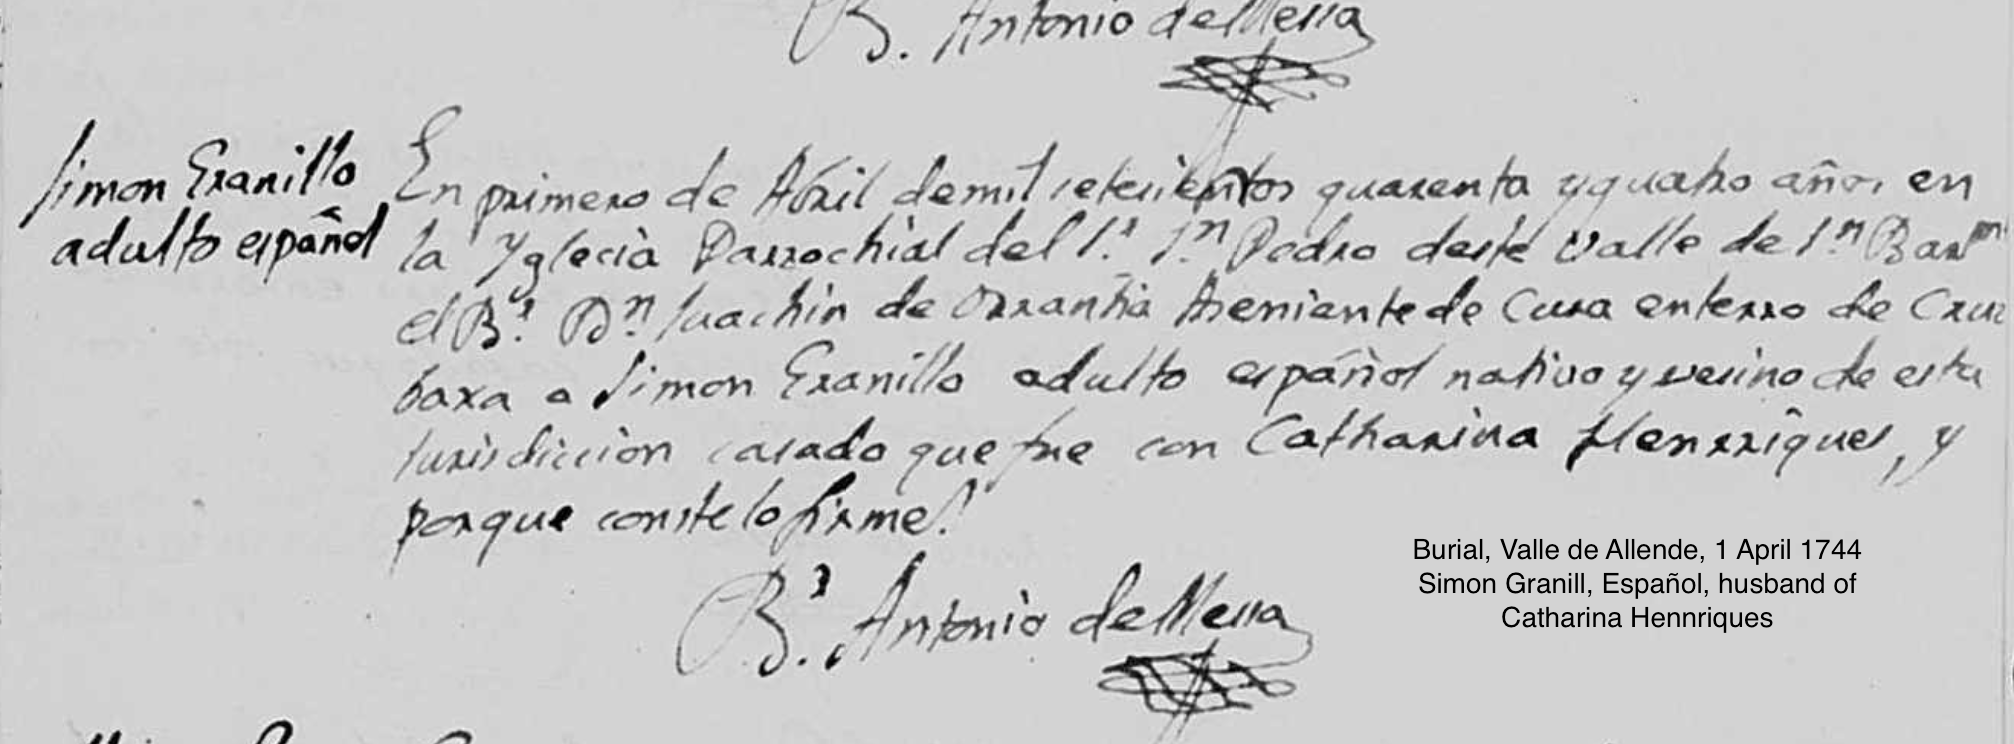 B. Antonio de Messa
Simon Granillo
adulto español
En primero de Abril de mil setesientos quarenta y quatro años en
la Yglecia Parrochial del Sr. Sn. Pedro deste Valle de Sn. Barme
el Br. Dn. Juachin de Orrantia Theniente de Cura enterro de Cruz
baxa a Simon Granillo adulto español nativo y vesino de esta
Jurisdiccion casado que fue con Catharina Henrriques, y
porque conste lo firme.
Br. Antonio de Messa
Burial, Valle de Allende, 1 April 1744
Simon Granill, Español, husband of
Catharina Hennriques